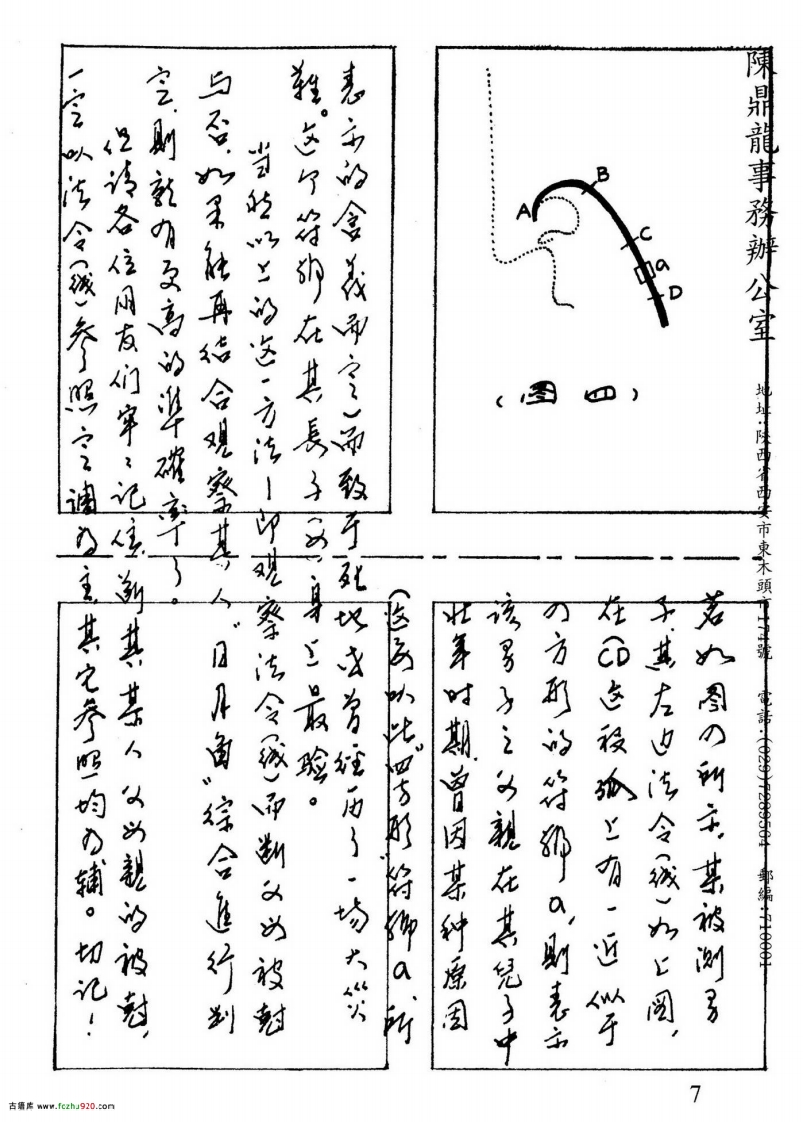 陳鼎龍事務辦公室
地址:陝西省西安市東木頭市174號 電話:(029)7289504 郵編:710001
A
B
C
a
D
(图四)
若如图四所示,某被测男
子,其左边法令(綫)如上图,
在CD这段弧上有一近似于
四方形的符號a,则表示
该男子之父親在其兒子中
壮年时期,曾因某种原因
(这要以此"四方形"符號a所
表示的含義而定)而致于死地或曾经历了一场大災
難。这个符號在其長子(女)身上最验。
当然以上的这一方法—即观察法令(綫)而断父母被尅
与否,如果能再结合观察某人"日月角"综合進行判
定,則就有更高的準確率了。
但请各位朋友们牢〻记住,断其某人父母親的被尅,
一定以法令(綫)参照定谱为主,其它参照均为辅。切记!
7
古籍库 www.fozhu920.com